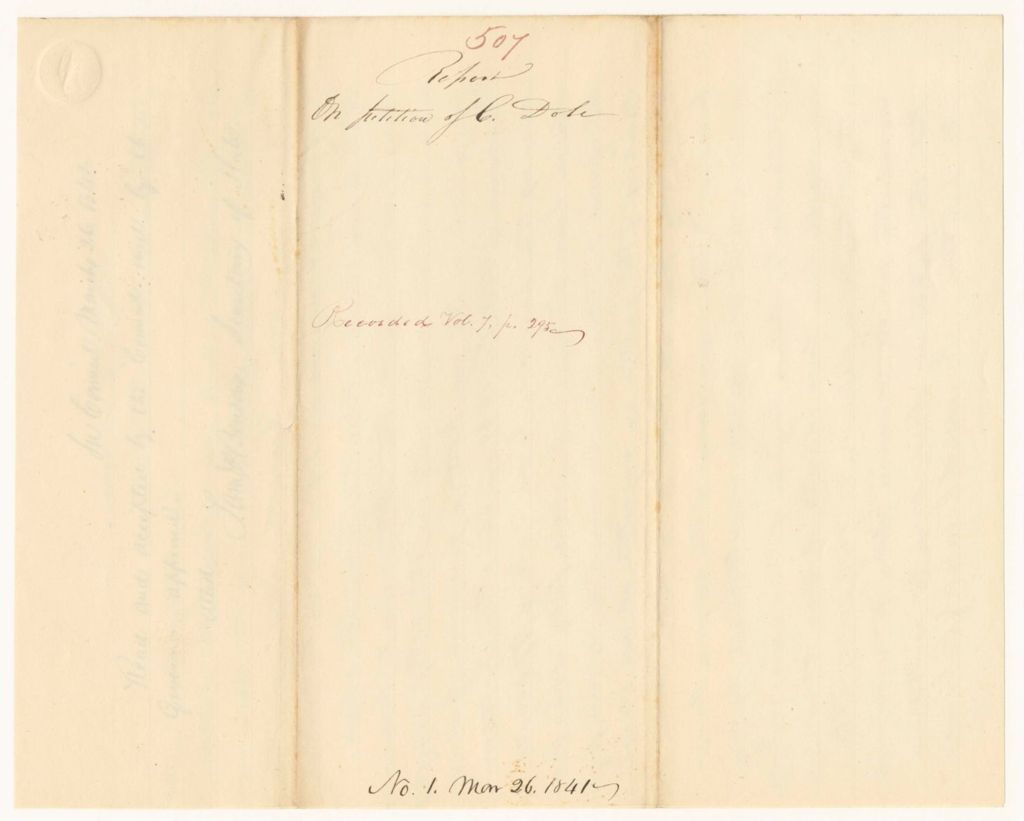 507
Report
On petition of C. Dole
Recorded Vol. 7, p. 295
No. 1. Mar 26. 1841
In Council March 26 1841.
Read and accepted by the Council and by the
Governor approved.
Attest
Secretary of State